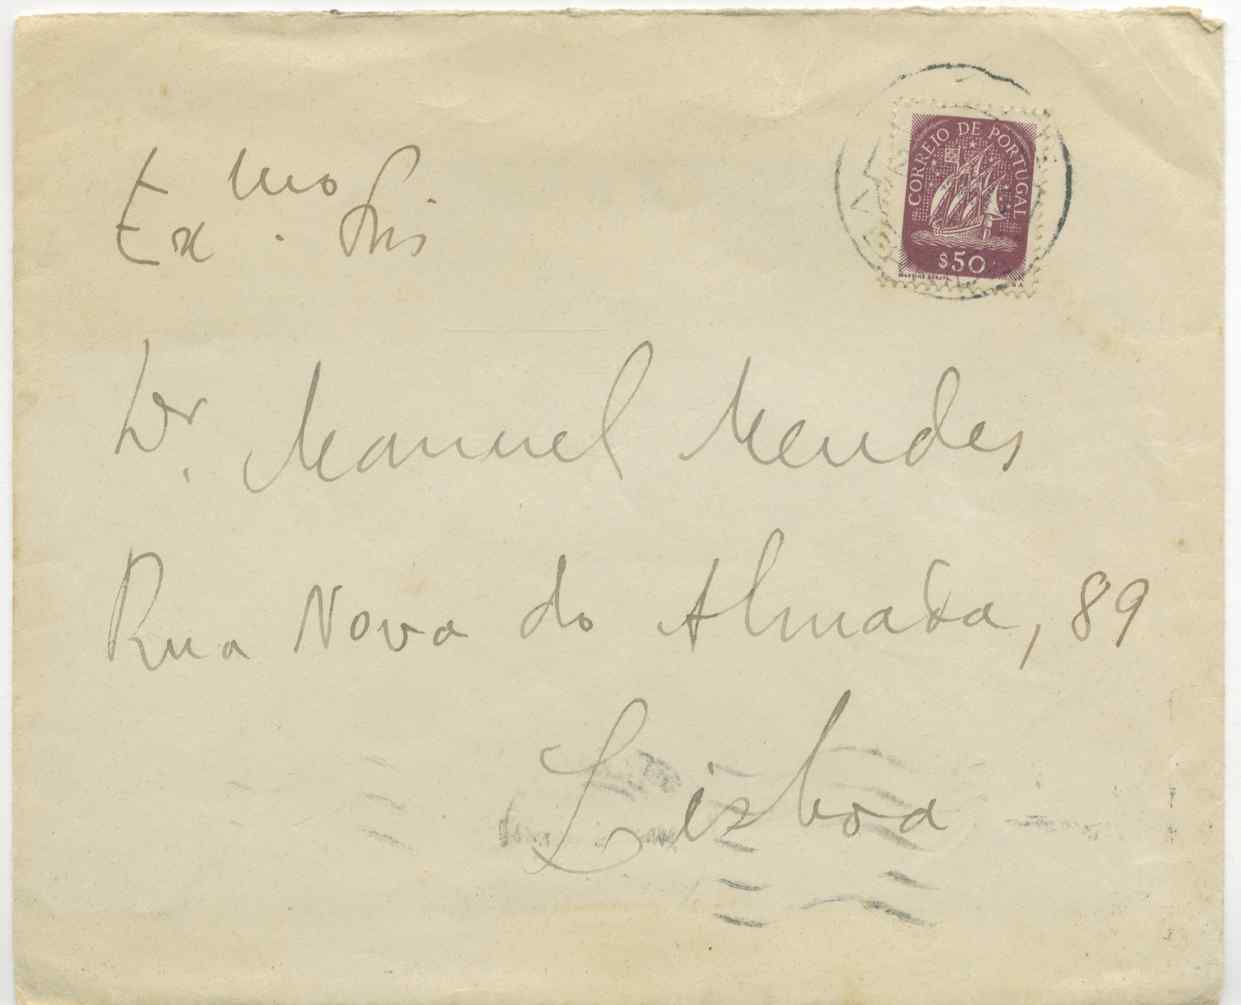 CORREIO DE PORTUGAL
$50
Exmo. Snr.
Dr. Manuel Mendes
Rua Nova do Almada, 89
Lisboa